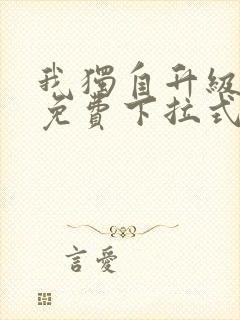 我獨自升級
免費下拉式
言愛